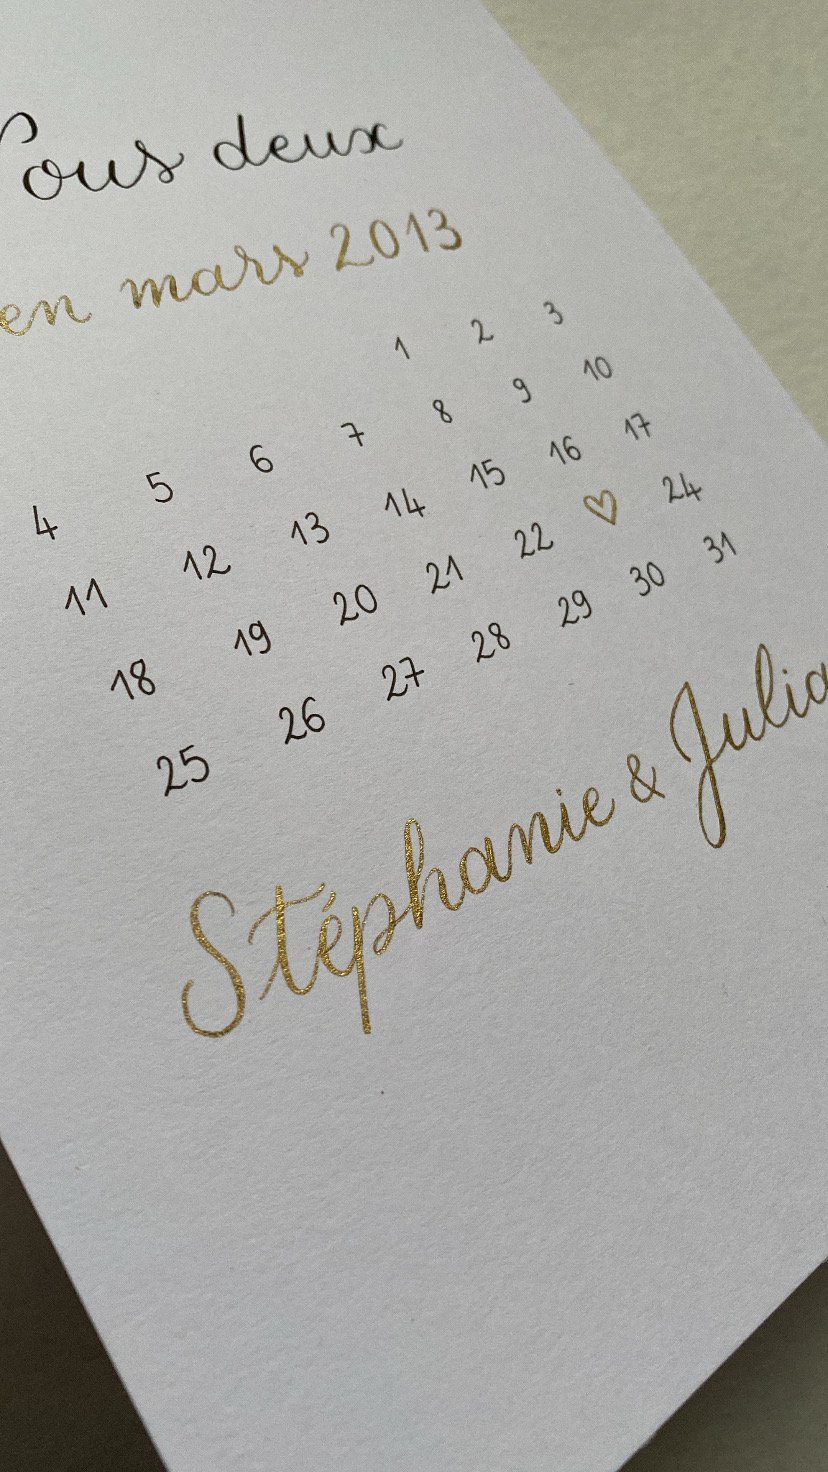 deux
en mars 2013
1 2 3
4 5 6 7 8 9 10
11 12 13 14 15 16 17
18 19 20 21 22 ♡ 24
25 26 27 28 29 30 31
Stéphanie & Julia